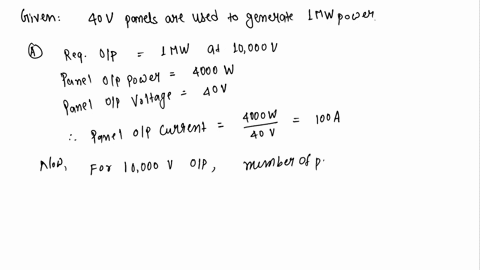 Given: 40V panels are used to generate 1MW power.
Ⓐ Req. O/P = 1MW at 10,000V
Panel O/P power = 4000 W
Panel O/P Voltage = 40V
∴ Panel O/P Current = 4000W / 40 V = 100A
Now, For 10,000 V O/P, number of p.